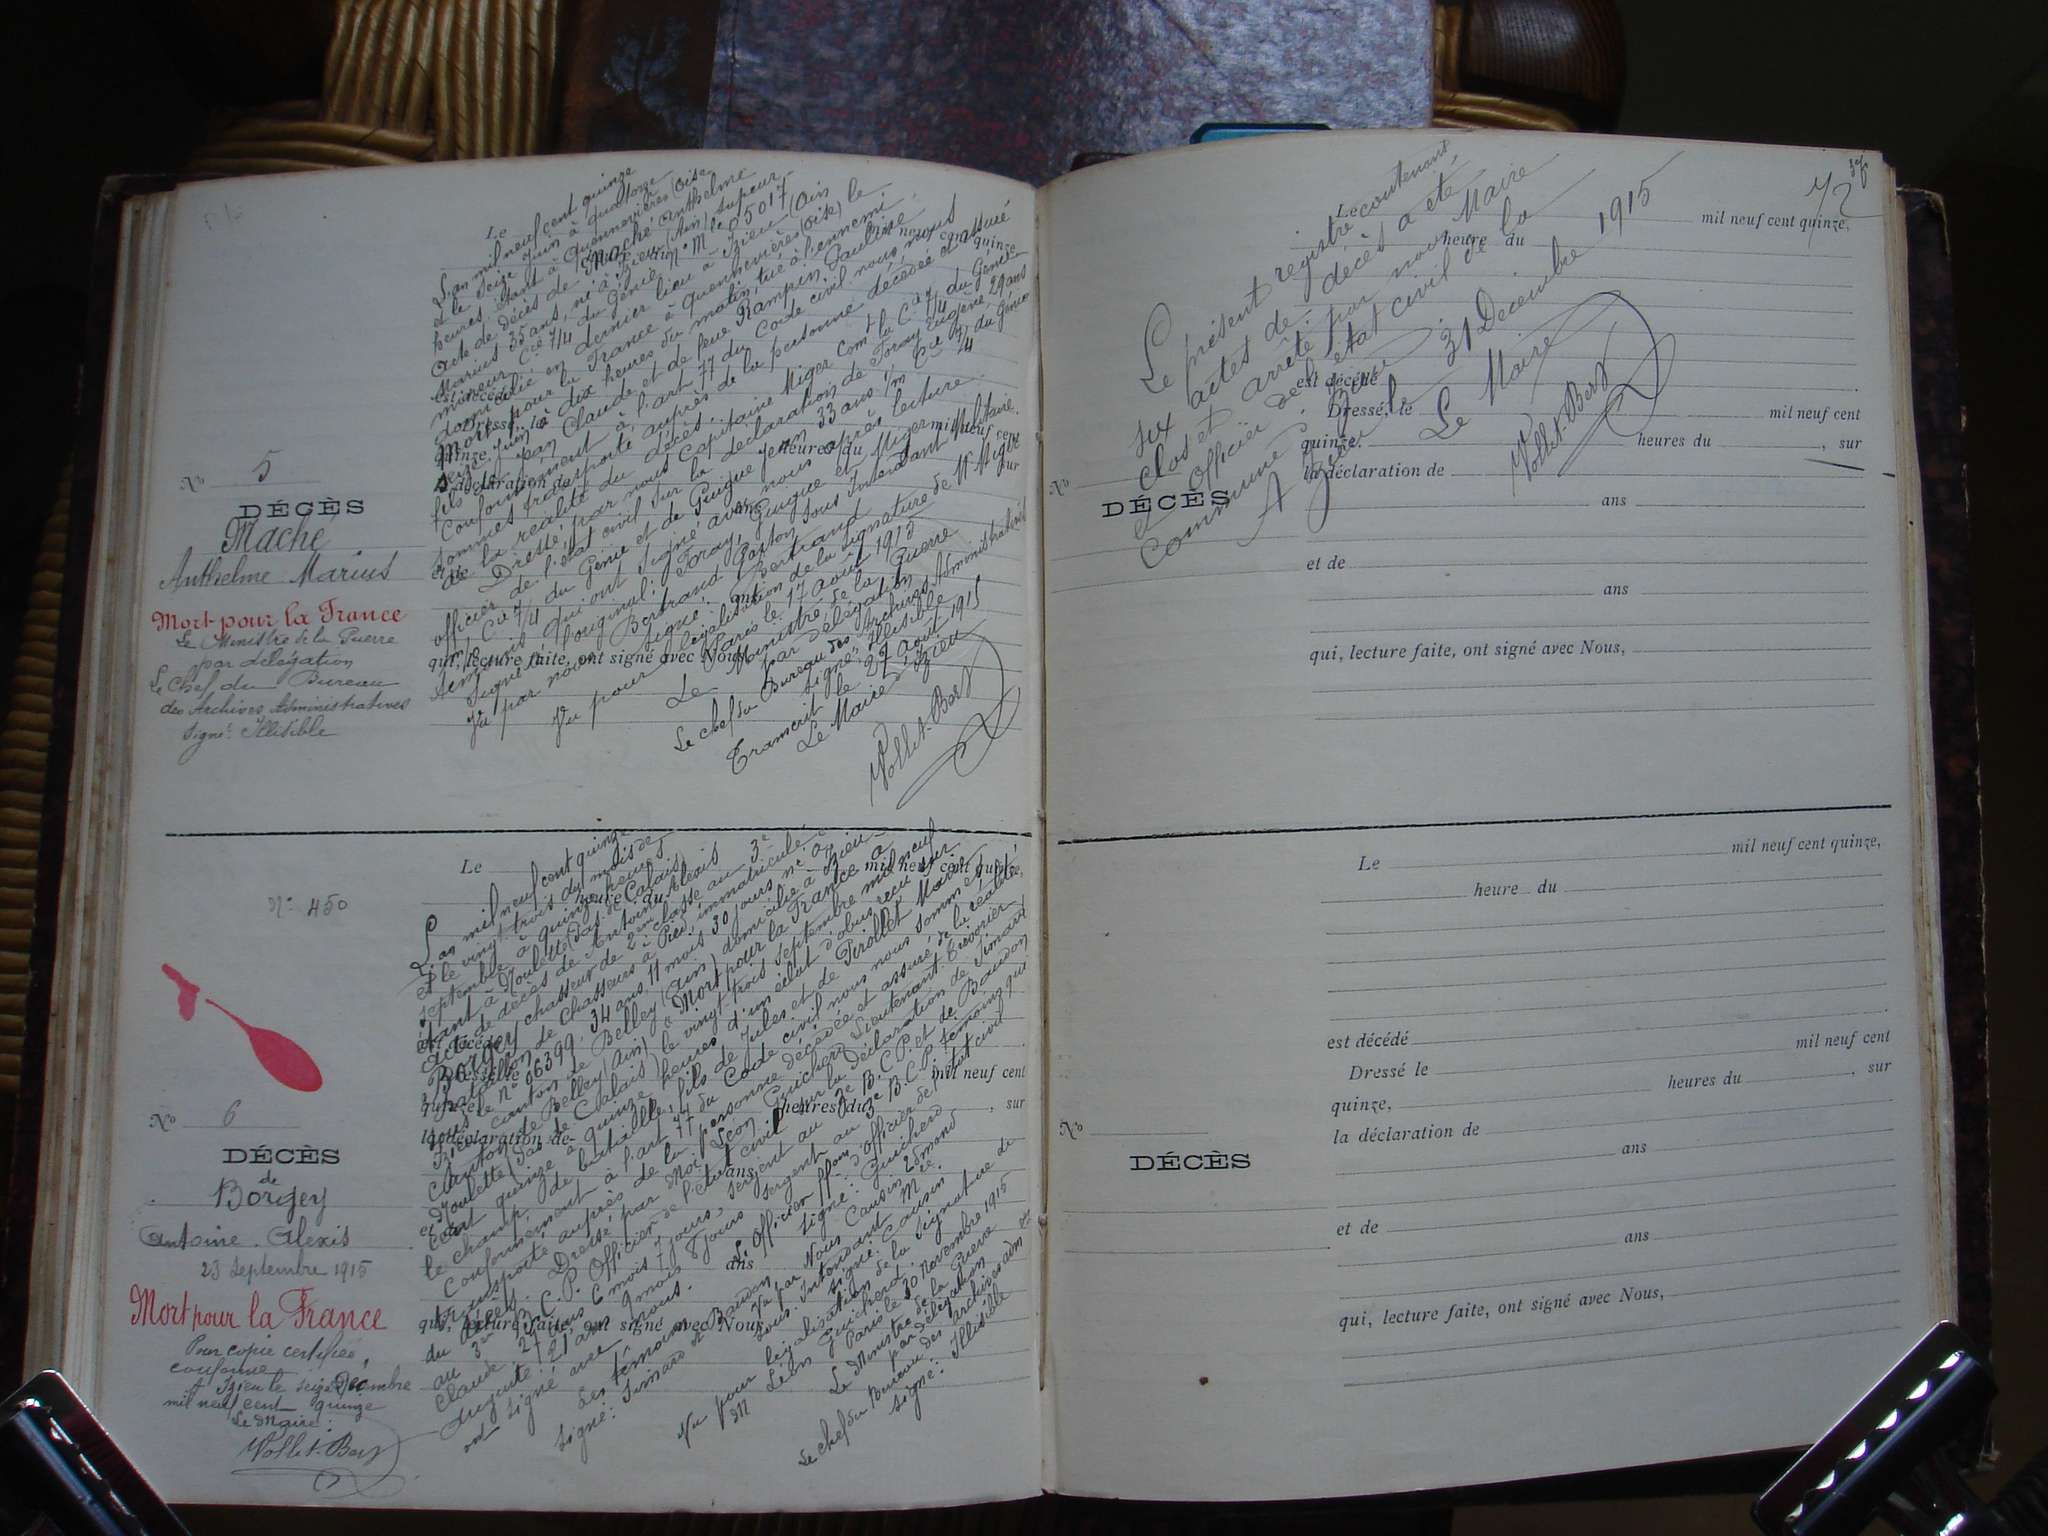 Nº 5
DÉCÈS
Maché
Anthelme Marius
Mort pour la France
Le Ministre de la Guerre
par délégation
Le Chef du Bureau
des Archives Administratives
signé: Illisible
Le
L'an mil neuf cent quinze
et le seize Juin à quatorze
heures étant à Quennevières (Oise
Acte de décès de Maché Anthelme
Marius 35 ans, né à Izieu (Ain) sapeur
mineur Cie 7/4 du génie Nº Mle 05017
domicilié en dernier lieu à Izieu (Ain
Mort pour la France à Quennevières (Oise) le
seize Juin à dix heures du matin, tué à l'ennemi
fils de Jean Claude et de feue Rampin, Pauline
Conformément à l'art 77 du Code civil nous nous
sommes transporté auprès de la personne décédée et assuré
de la réalité du décès.
Dressé par nous Capitaine Miger comt la Cie 7/4 du Génie
officier de l'état civil sur la déclaration de Foray Eugène 29 ans
Cie 7/4 du Génie et de Guigue Jean 33 ans
témoins qui ont signé avec nous après lecture
Signé à l'original: Foray, Guigue et Miger
Vu par nous Bertrand Gaston Sous Intendant Militaire.
signé: Bertrand
Vu pour légalisation de la signature de Mr Miger
Paris le 17 août 1915
Le Ministre de la Guerre
par délégation
Le chef du Bureau des Archives Administratives
signé: Illisible
Transcrit le 27 août 1915
Le Maire d'Izieu
Vollet-Bert
mil neuf cent quinze,
est décédé
Dressé, le
mil neuf cent
quinze,
heures du
sur
la déclaration de
et de
ans
qui, lecture faite, ont signé avec Nous,
Nº 450
Nº 6
DÉCÈS
de
Borgey
Antoine Alexis
23 Septembre 1915
Mort pour la France
Pour copie certifiée
conforme
A Izieu le seize Décembre
mil neuf cent quinze
Le Maire:
Vollet-Bert
Le
mil neuf cent quinze,
heure du
L'an mil neuf cent quinze
et le vingt trois du mois de
septembre à quinze heures
étant à Noulette (Pas de Calais)
Acte de décès de Antoine Alexis
Borgey chasseur de 2ème classe au 3e
bataillon de Chasseurs à Pied, immatriculé
sous le nº 06399. 34 ans 11 mois 30 jours né à
Izieu canton de Belley (Ain) domicilié à Izieu
canton de Belley (Ain) Mort pour la France à
Noulette (Pas de Calais) le vingt trois septembre mil neuf
cent quinze à quinze heures d'un éclat d'obus reçu sur
le champ de bataille, fils de Jules et de Pirollet Marie
Conformément à l'art 77 du Code civil nous nous sommes
transporté auprès de la personne décédée et assuré de la réalité
du décès. Dressé par moi Léon Guicherd Lieutenant trésorier
au 3e B.C.P. Officier de l'état civil sur la déclaration de Simard
Claude 27 ans 6 mois 7 jours, sergent au 3e B.C.P. et de Baudon
Auguste 21 ans 9 mois 8 jours sergent au 3e B.C.P. témoins qui
ont signé avec nous.
Les témoins
L'Officier ffons d'officier de l'état civil
Signé: Simard et Baudon
signé: Guicherd
Vu par Nous Cousin
Sous Intendant Mre
signé: Cousin
Vu pour légalisation de la signature de
M Léon Guicherd.
Paris le 30 novembre 1915
Le Ministre de la Guerre
par délégation
Le chef du Bureau des Archives adm
signé: Illisible
est décédé
Dressé le
mil neuf cent
quinze
heures du
, sur
la déclaration de
ans
et de
ans
qui, lecture faite, ont signé avec Nous,
72
Le
mil neuf cent quinze,
heure du
Le présent registre contenant
six actes de décès a été
clos et arrêté par nous Maire
et Officier de l'état civil de la
commune d'Izieu
A Izieu le 31 Décembre 1915
Le Maire
Vollet-Bert
Nº
DÉCÈS
est décédé
Dressé, le
mil neuf cent
quinze,
heures du
, sur
la déclaration de
ans
et de
ans
qui, lecture faite, ont signé avec Nous,
Nº
DÉCÈS
Le
mil neuf cent quinze,
heure du
est décédé
Dressé le
mil neuf cent
quinze,
heures du
, sur
la déclaration de
ans
et de
ans
qui, lecture faite, ont signé avec Nous,